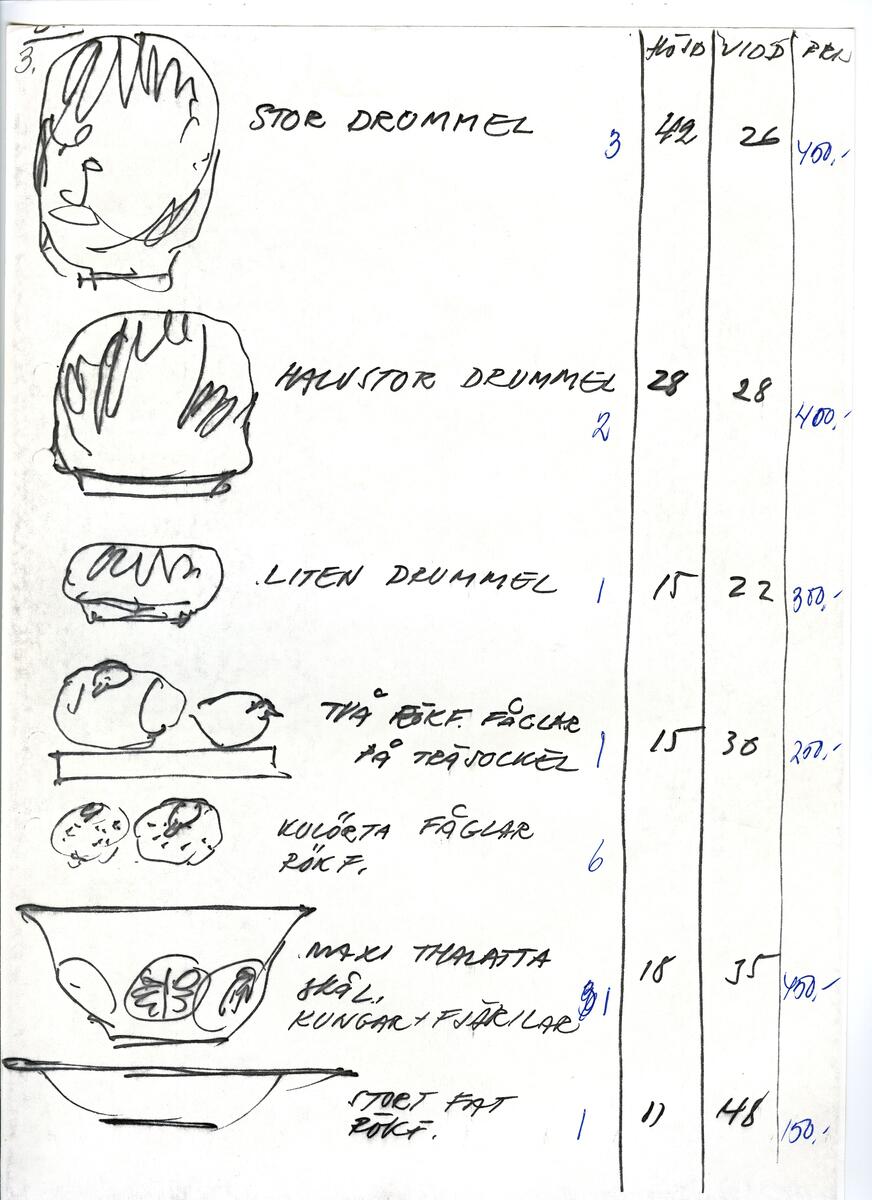 3.
HÖJD VIDD PRI
STOR DRUMMEL 3 42 26 450,-
HALVSTOR DRUMMEL 2 28 28 400,-
LITEN DRUMMEL 1 15 22 300,-
TVÅ RÖKF. FÅGLAR
PÅ TRÄSOCKEL 1 15 30 200,-
KULÖRTA FÅGLAR
RÖKF. 6
MAXI THALATTA
SKÅL, 18 35 450,-
KUNGAR + FJÄRILAR 1
STORT FAT
RÖKF. 1 11 48 150,-